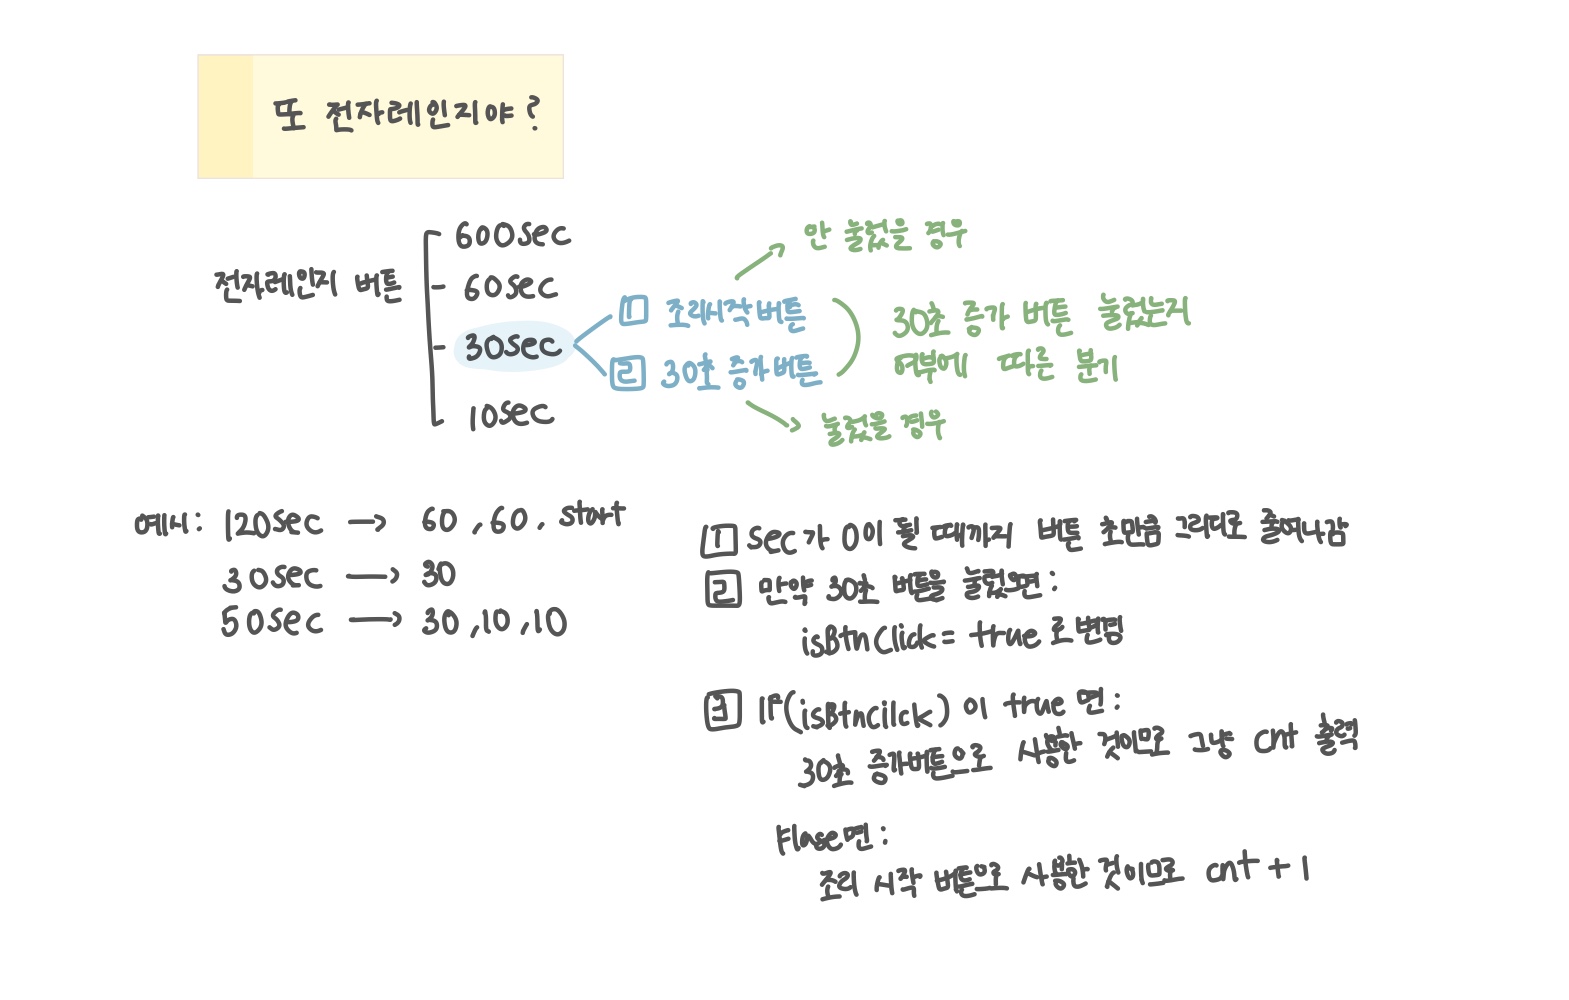 또 전자레인지야?
전자레인지 버튼
600sec
60sec
30sec
10sec
1 조리시작버튼
2 30초 증가버튼
안 눌렀을 경우
30초 증가 버튼 눌렀는지
여부에 따른 분기
눌렀을 경우
예시: 120sec → 60, 60, start
30sec → 30
50sec → 30, 10, 10
1 sec가 0이 될 때까지 버튼 초만큼 그리디로 줄여나감
2 만약 30초 버튼을 눌렀으면:
isBtnClick = true 로 변경
3 IF(isBtnCilck) 이 true 면:
30초 증가버튼으로 사용한 것이므로 그냥 cnt 출력
Flase면:
조리 시작 버튼으로 사용한 것이므로 cnt + 1